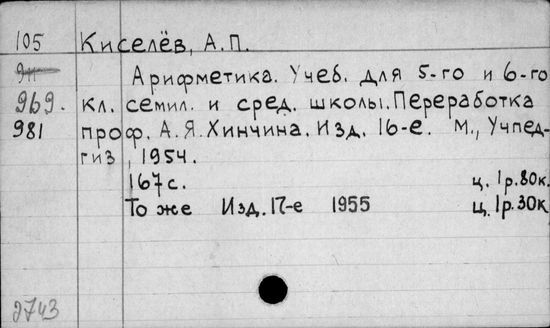 105 Киселёв, А.П.
911 Арифметика. Учеб. для 5-го и 6-го
969. кл. семил. и сред. школы. Переработка
981 проф. А.Я. Хинчина. Изд. 16-е. М., Учпед-
гиз, 1954.
167 с. ц. 1р.80к.
То же Изд. 17-е 1955 ц. 1р.30к
2743